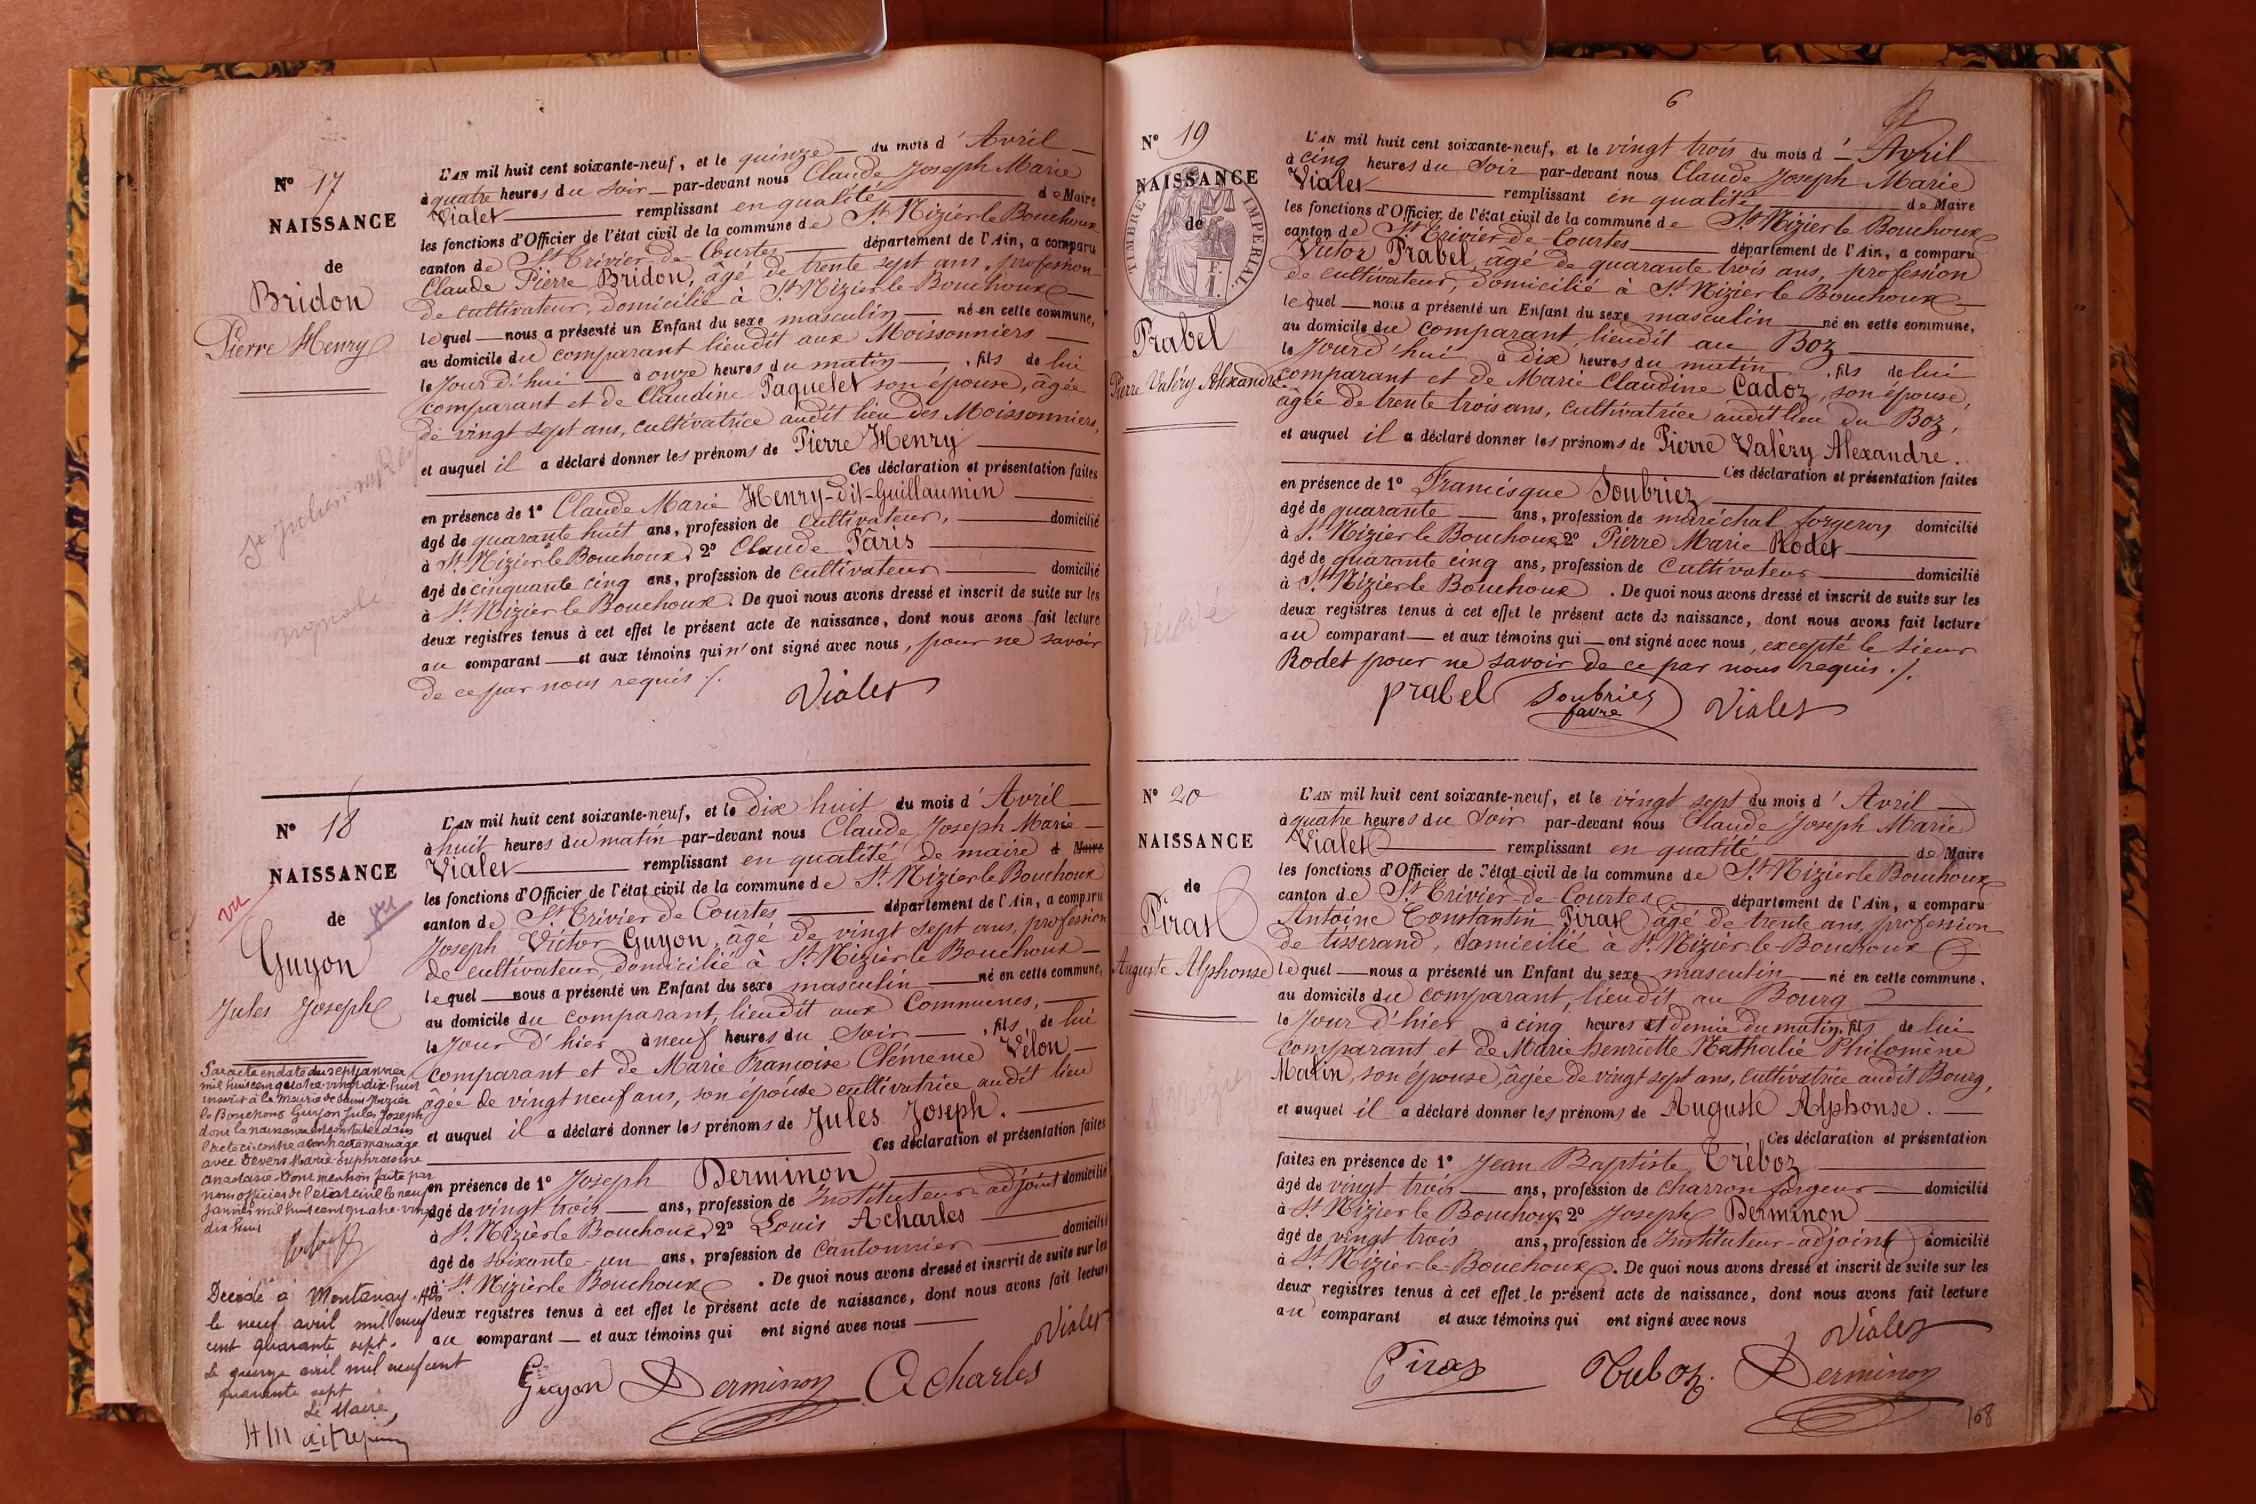 Nº 17
NAISSANCE
de
Bridon
Pierre Henry
L'AN mil huit cent soixante-neuf, et le quinze du mois d'Avril
à quatre heures du soir par-devant nous Claude Joseph Marie
Vialet remplissant en qualité de Maire
les fonctions d'Officier de l'état civil de la commune de St Nizier le Bouchoux
canton de St Trivier de Courtes département de l'Ain, a comparu
Claude Pierre Bridon, âgé de trente sept ans, profession
de cultivateur, domicilié à St Nizier le Bouchoux
lequel nous a présenté un Enfant du sexe masculin né en cette commune,
au domicile du comparant lieudit aux Moissonniers
le jour d'hui à onze heures du matin, fils de lui
comparant et de Claudine Paquelet son épouse, âgée
de vingt sept ans, cultivatrice audit lieu des Moissonniers,
et auquel il a déclaré donner les prénoms de Pierre Henry
Ces déclaration et présentation faites
en présence de 1º Claude Marie Henry-dit-Guillaumin
âgé de quarante huit ans, profession de cultivateur, domicilié
à St Nizier le Bouchoux, 2º Claude Pâris
âgé de cinquante cinq ans, profession de cultivateur domicilié
à St Nizier le Bouchoux. De quoi nous avons dressé et inscrit de suite sur les
deux registres tenus à cet effet le présent acte de naissance, dont nous avons fait lecture
au comparant et aux témoins qui n'ont signé avec nous, pour ne savoir
de ce par nous requis ./.
Vialet
Nº 18
NAISSANCE
vu
de
Guyon
Jules Joseph
L'AN mil huit cent soixante-neuf, et le dix huit du mois d'Avril
à huit heures du matin par-devant nous Claude Joseph Marie
Vialet remplissant en qualité de maire d Maire
les fonctions d'Officier de l'état civil de la commune de St Nizier le Bouchoux
canton de St Trivier de Courtes département de l'Ain, a comparu
Joseph Victor Guyon, âgé de vingt sept ans, profession
de cultivateur, domicilié à St Nizier le Bouchoux
lequel nous a présenté un Enfant du sexe masculin né en cette commune,
au domicile du comparant, lieudit aux Communes,
le jour d'hier à neuf heures du soir, fils de lui
comparant et de Marie Françoise Clémence Vélon
âgée de vingt neuf ans, son épouse cultivatrice audit lieu
et auquel il a déclaré donner les prénoms de Jules Joseph.
Ces déclaration et présentation faites
en présence de 1º Joseph Derminon
âgé de vingt trois ans, profession de Instituteur-adjoint domicilié
à St Nizier le Bouchoux, 2º Louis Acharles
âgé de soixante un ans, profession de cantonnier domicilié
à St Nizier le Bouchoux. De quoi nous avons dressé et inscrit de suite sur les
deux registres tenus à cet effet le présent acte de naissance, dont nous avons fait lecture
au comparant et aux témoins qui ont signé avec nous
Vialet
Guyon Derminon Acharles
Par acte en date du sept janvier
mil huit cent quatre-vingt-dix-huit
inscrit à la Mairie de Saint Nizier
le Bouchoux Guyon Jules Joseph
dont la naissance est constatée dans
l'acte ci-contre a contracté mariage
avec Devers Marie Euphrosine
Anastasie. Dont mention faite par
nous officier de l'état civil le neuf
janvier mil huit cent quatre-vingt
dix huit
Décédé à Montanay
le neuf avril mil neuf
cent quarante sept.
Le quinze avril mil neuf cent
quarante sept
Le Maire
6
Nº 19
NAISSANCE
de
TIMBRE IMPÉRIAL
Prabel
Pierre Valéry Alexandre
L'AN mil huit cent soixante-neuf, et le vingt trois du mois d'Avril
à cinq heures du soir par-devant nous Claude Joseph Marie
Vialet remplissant en qualité de Maire
les fonctions d'Officier de l'état civil de la commune de St Nizier le Bouchoux
canton de St Trivier de Courtes département de l'Ain, a comparu
Victor Prabel, âgé de quarante trois ans, profession
de cultivateur, domicilié à St Nizier le Bouchoux
lequel nous a présenté un Enfant du sexe masculin né en cette commune,
au domicile du comparant, lieudit au Boz
le Jourd'hui à dix heures du matin, fils de lui
comparant et de Marie Claudine Cadoz, son épouse,
âgée de trente trois ans, cultivatrice audit lieu du Boz,
et auquel il a déclaré donner les prénoms de Pierre Valéry Alexandre.
Ces déclaration et présentation faites
en présence de 1º Francisque Soubriez
âgé de quarante ans, profession de maréchal forgeron domicilié
à St Nizier le Bouchoux 2º Pierre Marie Rodet
âgé de quarante cinq ans, profession de cultivateur domicilié
à St Nizier le Bouchoux. De quoi nous avons dressé et inscrit de suite sur les
deux registres tenus à cet effet le présent acte de naissance, dont nous avons fait lecture
au comparant et aux témoins qui ont signé avec nous, excepté le sieur
Rodet pour ne savoir de ce par nous requis ./.
prabel Soubriez favre Vialet
Nº 20
NAISSANCE
de
Piras
Auguste Alphonse
L'AN mil huit cent soixante-neuf, et le vingt sept du mois d'Avril
à quatre heures du soir par-devant nous Claude Joseph Marie
Vialet remplissant en qualité de Maire
les fonctions d'Officier de l'état civil de la commune de St Nizier le Bouchoux
canton de St Trivier de Courtes département de l'Ain, a comparu
Antoine Constantin Piras âgé de trente ans, profession
de tisserand, domicilié à St Nizier le Bouchoux
lequel nous a présenté un Enfant du sexe masculin né en cette commune,
au domicile du comparant, lieudit au Bourg
le Jour d'hier à cinq heures et demie du matin, fils de lui
comparant et de Marie henriette Nathalie Philomène
Matin, son épouse, âgée de vingt sept ans, cultivatrice audit Bourg,
et auquel il a déclaré donner les prénoms de Auguste Alphonse.
Ces déclaration et présentation
faites en présence de 1º Jean Baptiste Tréboz
âgé de vingt trois ans, profession de charron forgeur domicilié
à St Nizier le Bouchoux, 2º Joseph Derminon
âgé de vingt trois ans, profession de Instituteur-adjoint domicilié
à St Nizier le Bouchoux. De quoi nous avons dressé et inscrit de suite sur les
deux registres tenus à cet effet le présent acte de naissance, dont nous avons fait lecture
au comparant et aux témoins qui ont signé avec nous
Vialet
Piras Treboz. Derminon
168